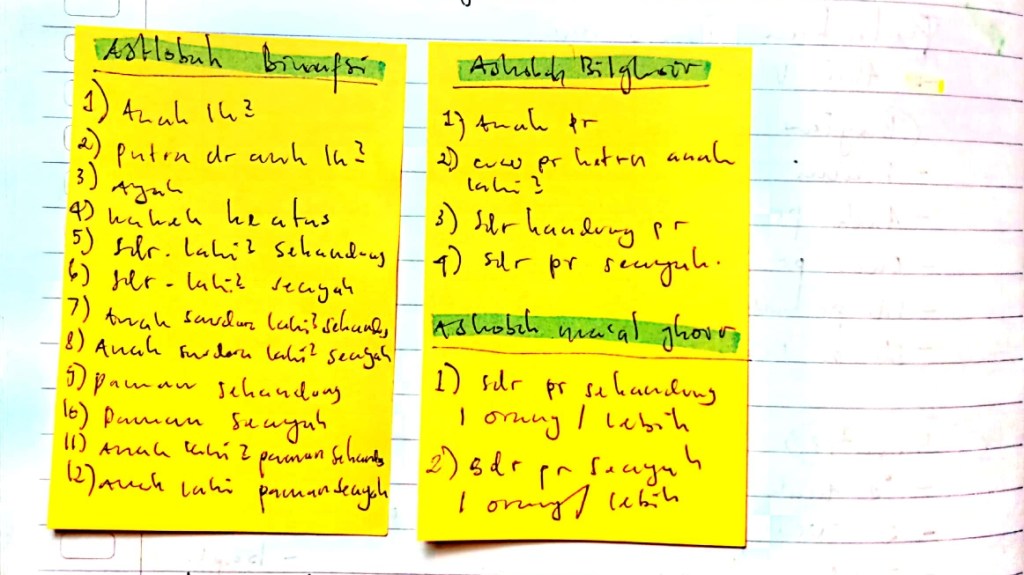 Ashobah Binnafsi
1) Anak lk²
2) putra dr anak lk²
3) Ayah
4) kakek keatas
5) Sdr. laki² sekandung
6) Sdr - laki² seayah
7) Anak saudara laki² sekandung
8) Anak saudara laki² seayah
9) Paman sekandung
10) Paman Seayah
11) Anak laki² paman sekandung
12) Anak laki paman seayah
Ashobah Bilghoir
1) Anak pr
2) cucu pr ketrn anak
laki²
3) Sdr kandung pr
4) Sdr pr seayah.
Ashobah ma'al ghoir
1) sdr pr sekandung
1 orang / lebih
2) Sdr pr seayah
1 orang / lebih